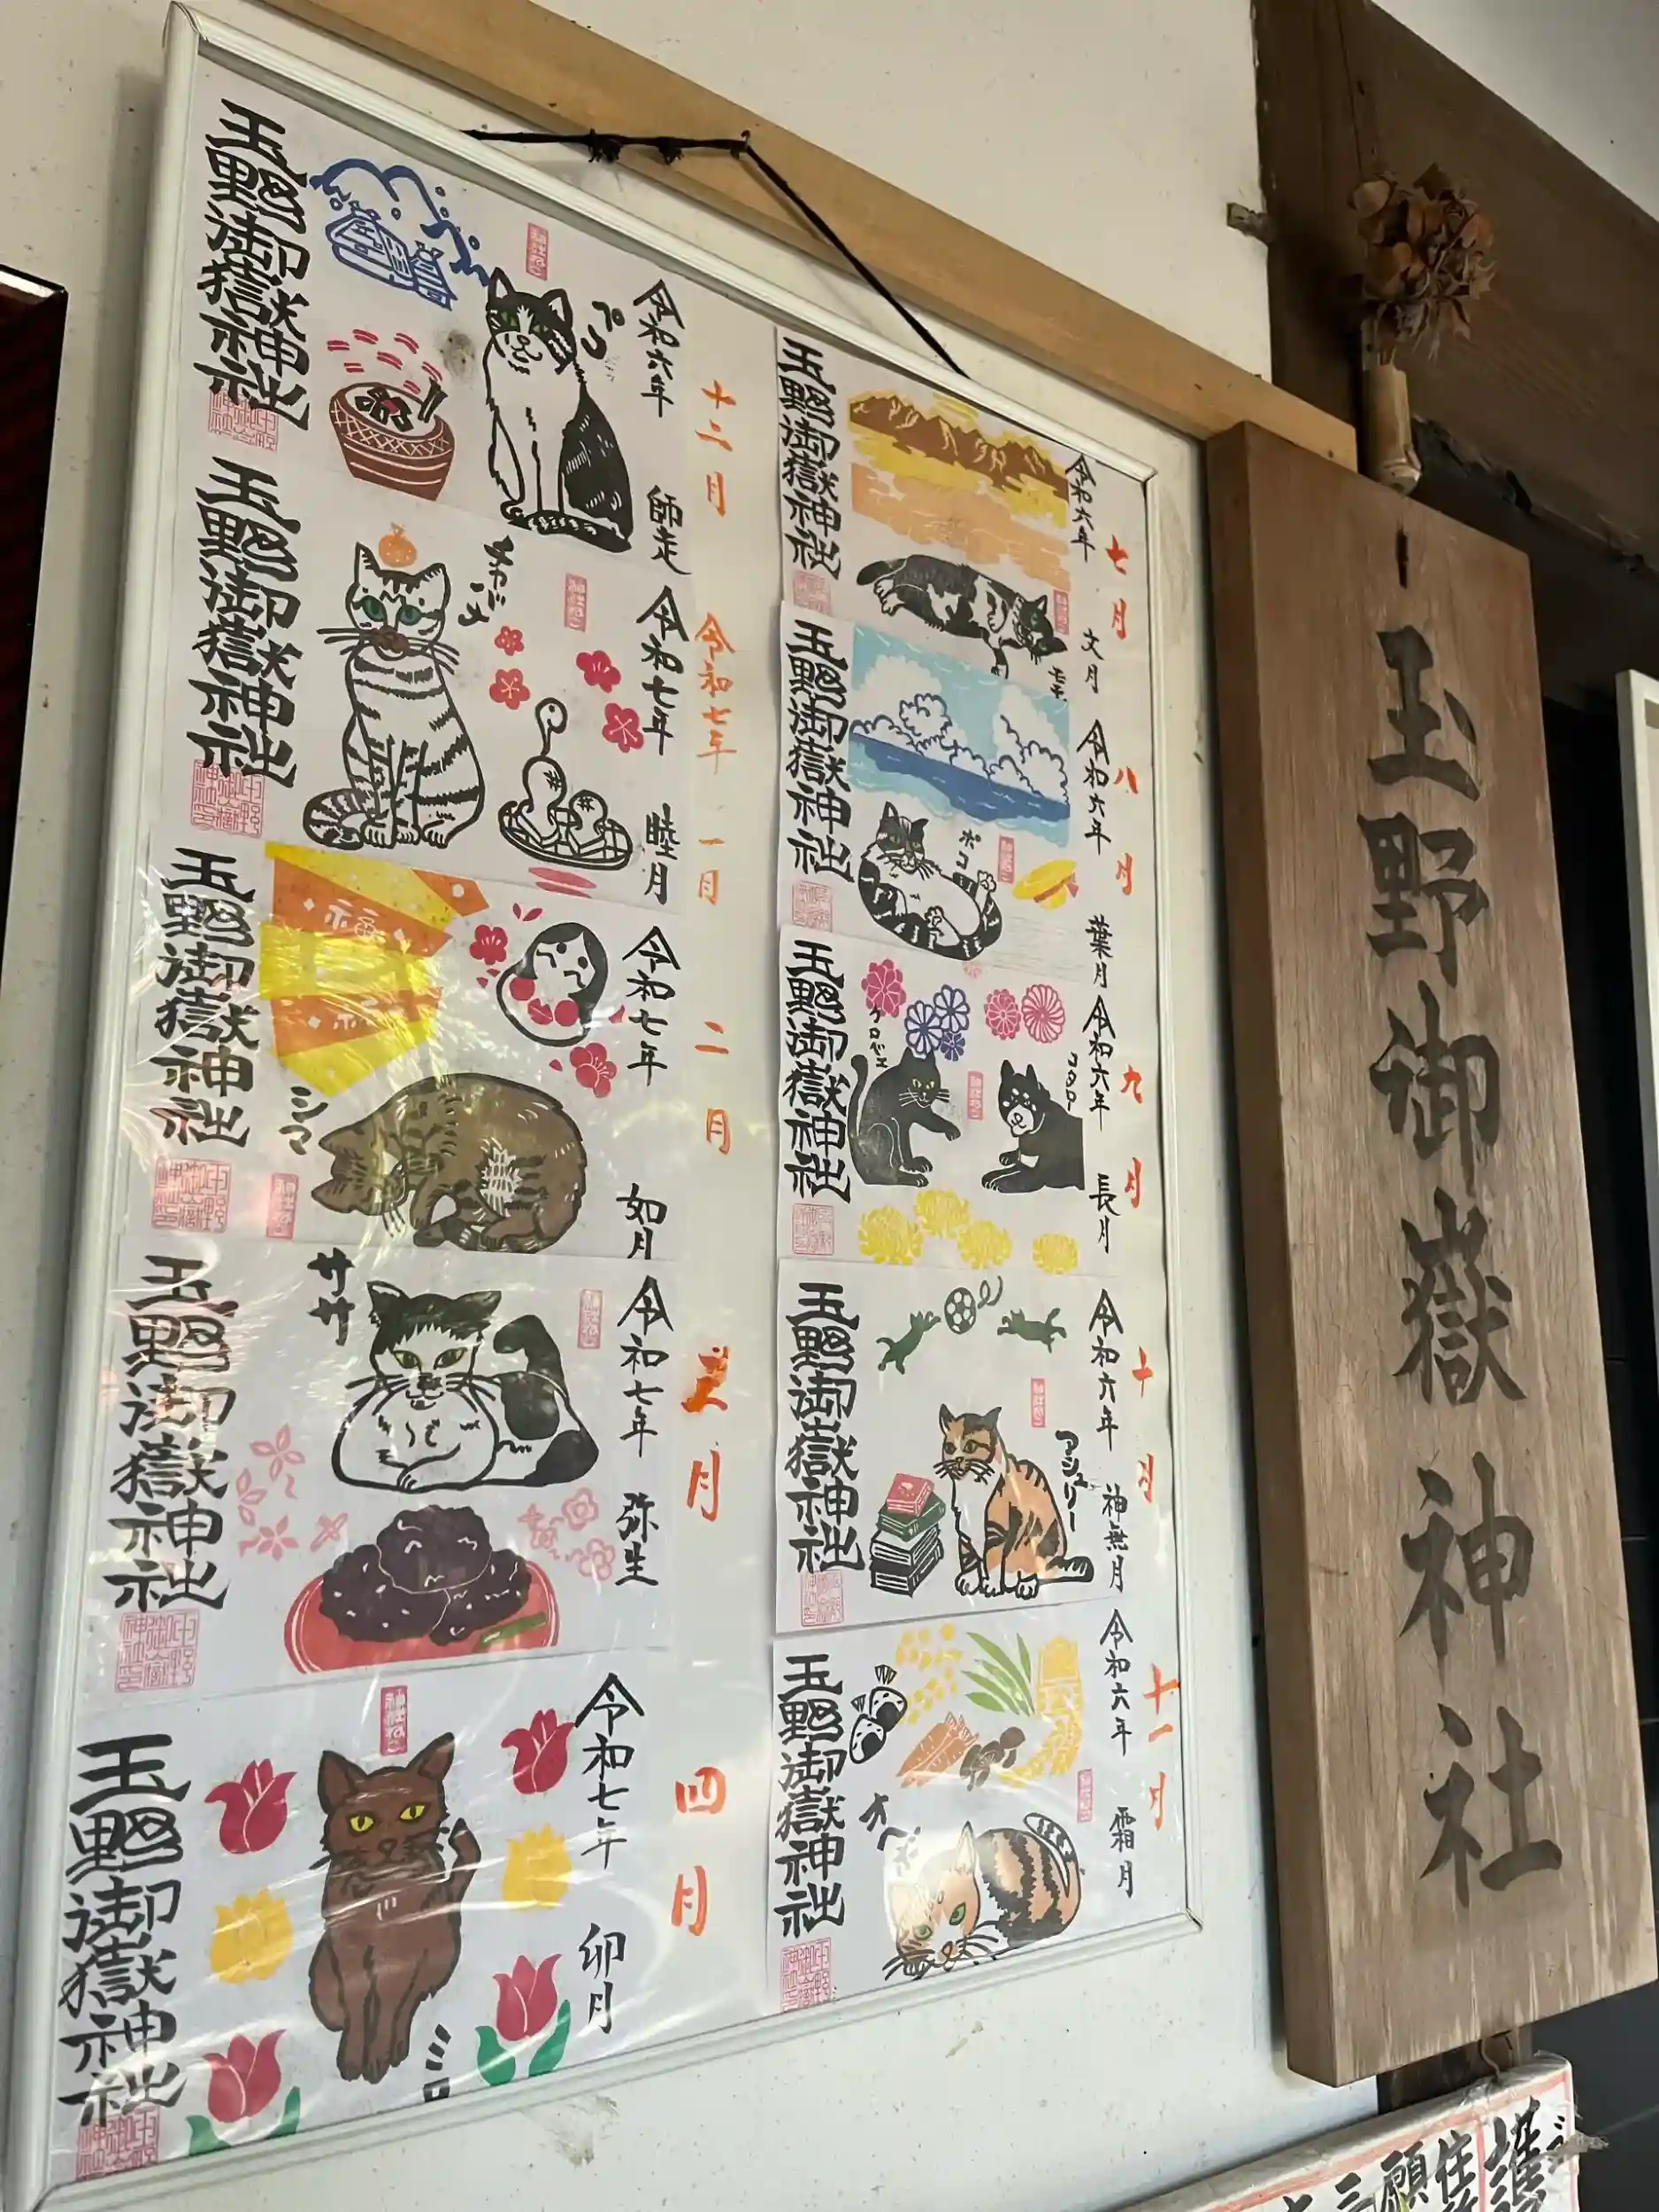 玉野御嶽神社
令和六年
十二月
師走
ペコ
神社ねこ
玉野御嶽神社
令和七年
令和七年 一月
睦月
神社ねこ
玉野御嶽神社
福
令和七年
二月
如月
シマ
神社ねこ
玉野御嶽神社
令和七年
弥生
月
ササ
神社ねこ
玉野御嶽神社
令和七年
四月
卯月
ミロ
神社ねこ
玉野御嶽神社
令和六年
七月
文月
玉野御嶽神社
令和六年
八月
葉月
ポコ
玉野御嶽神社
令和六年
九月
長月
クロベエ
コタロー
玉野御嶽神社
令和六年
十月
神無月
アシュリー
玉野御嶽神社
令和六年
十一月
霜月
玉野御嶽神社